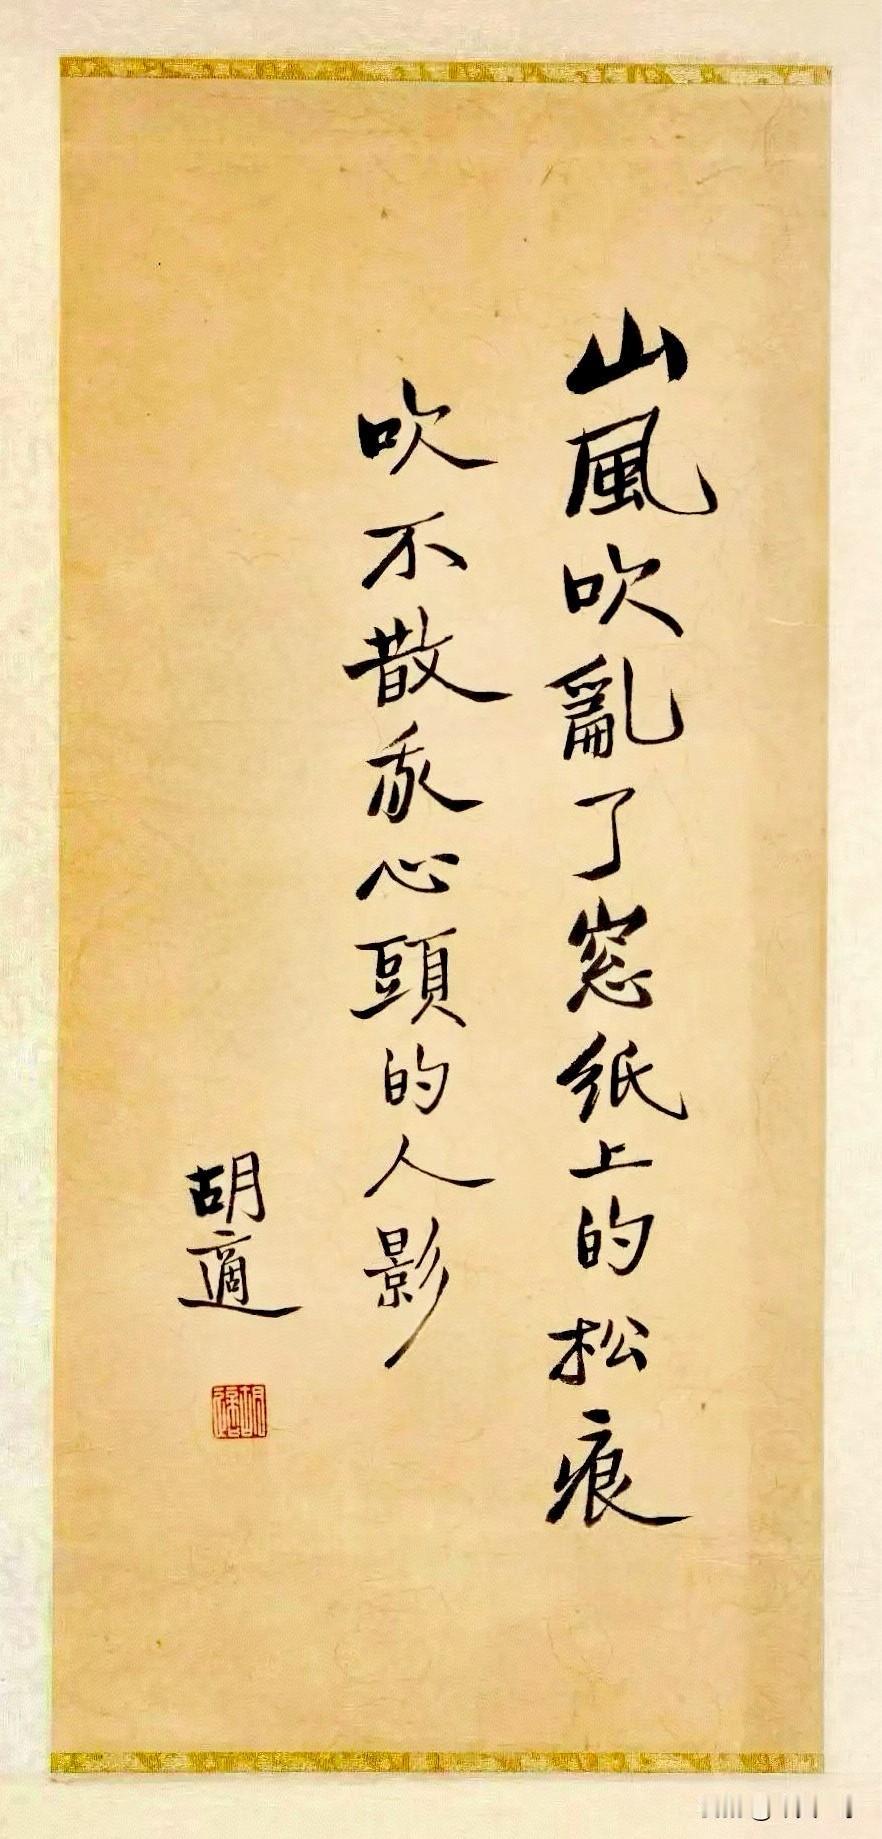 山風吹亂了窓紙上的松痕
吹不散我心頭的人影
胡適